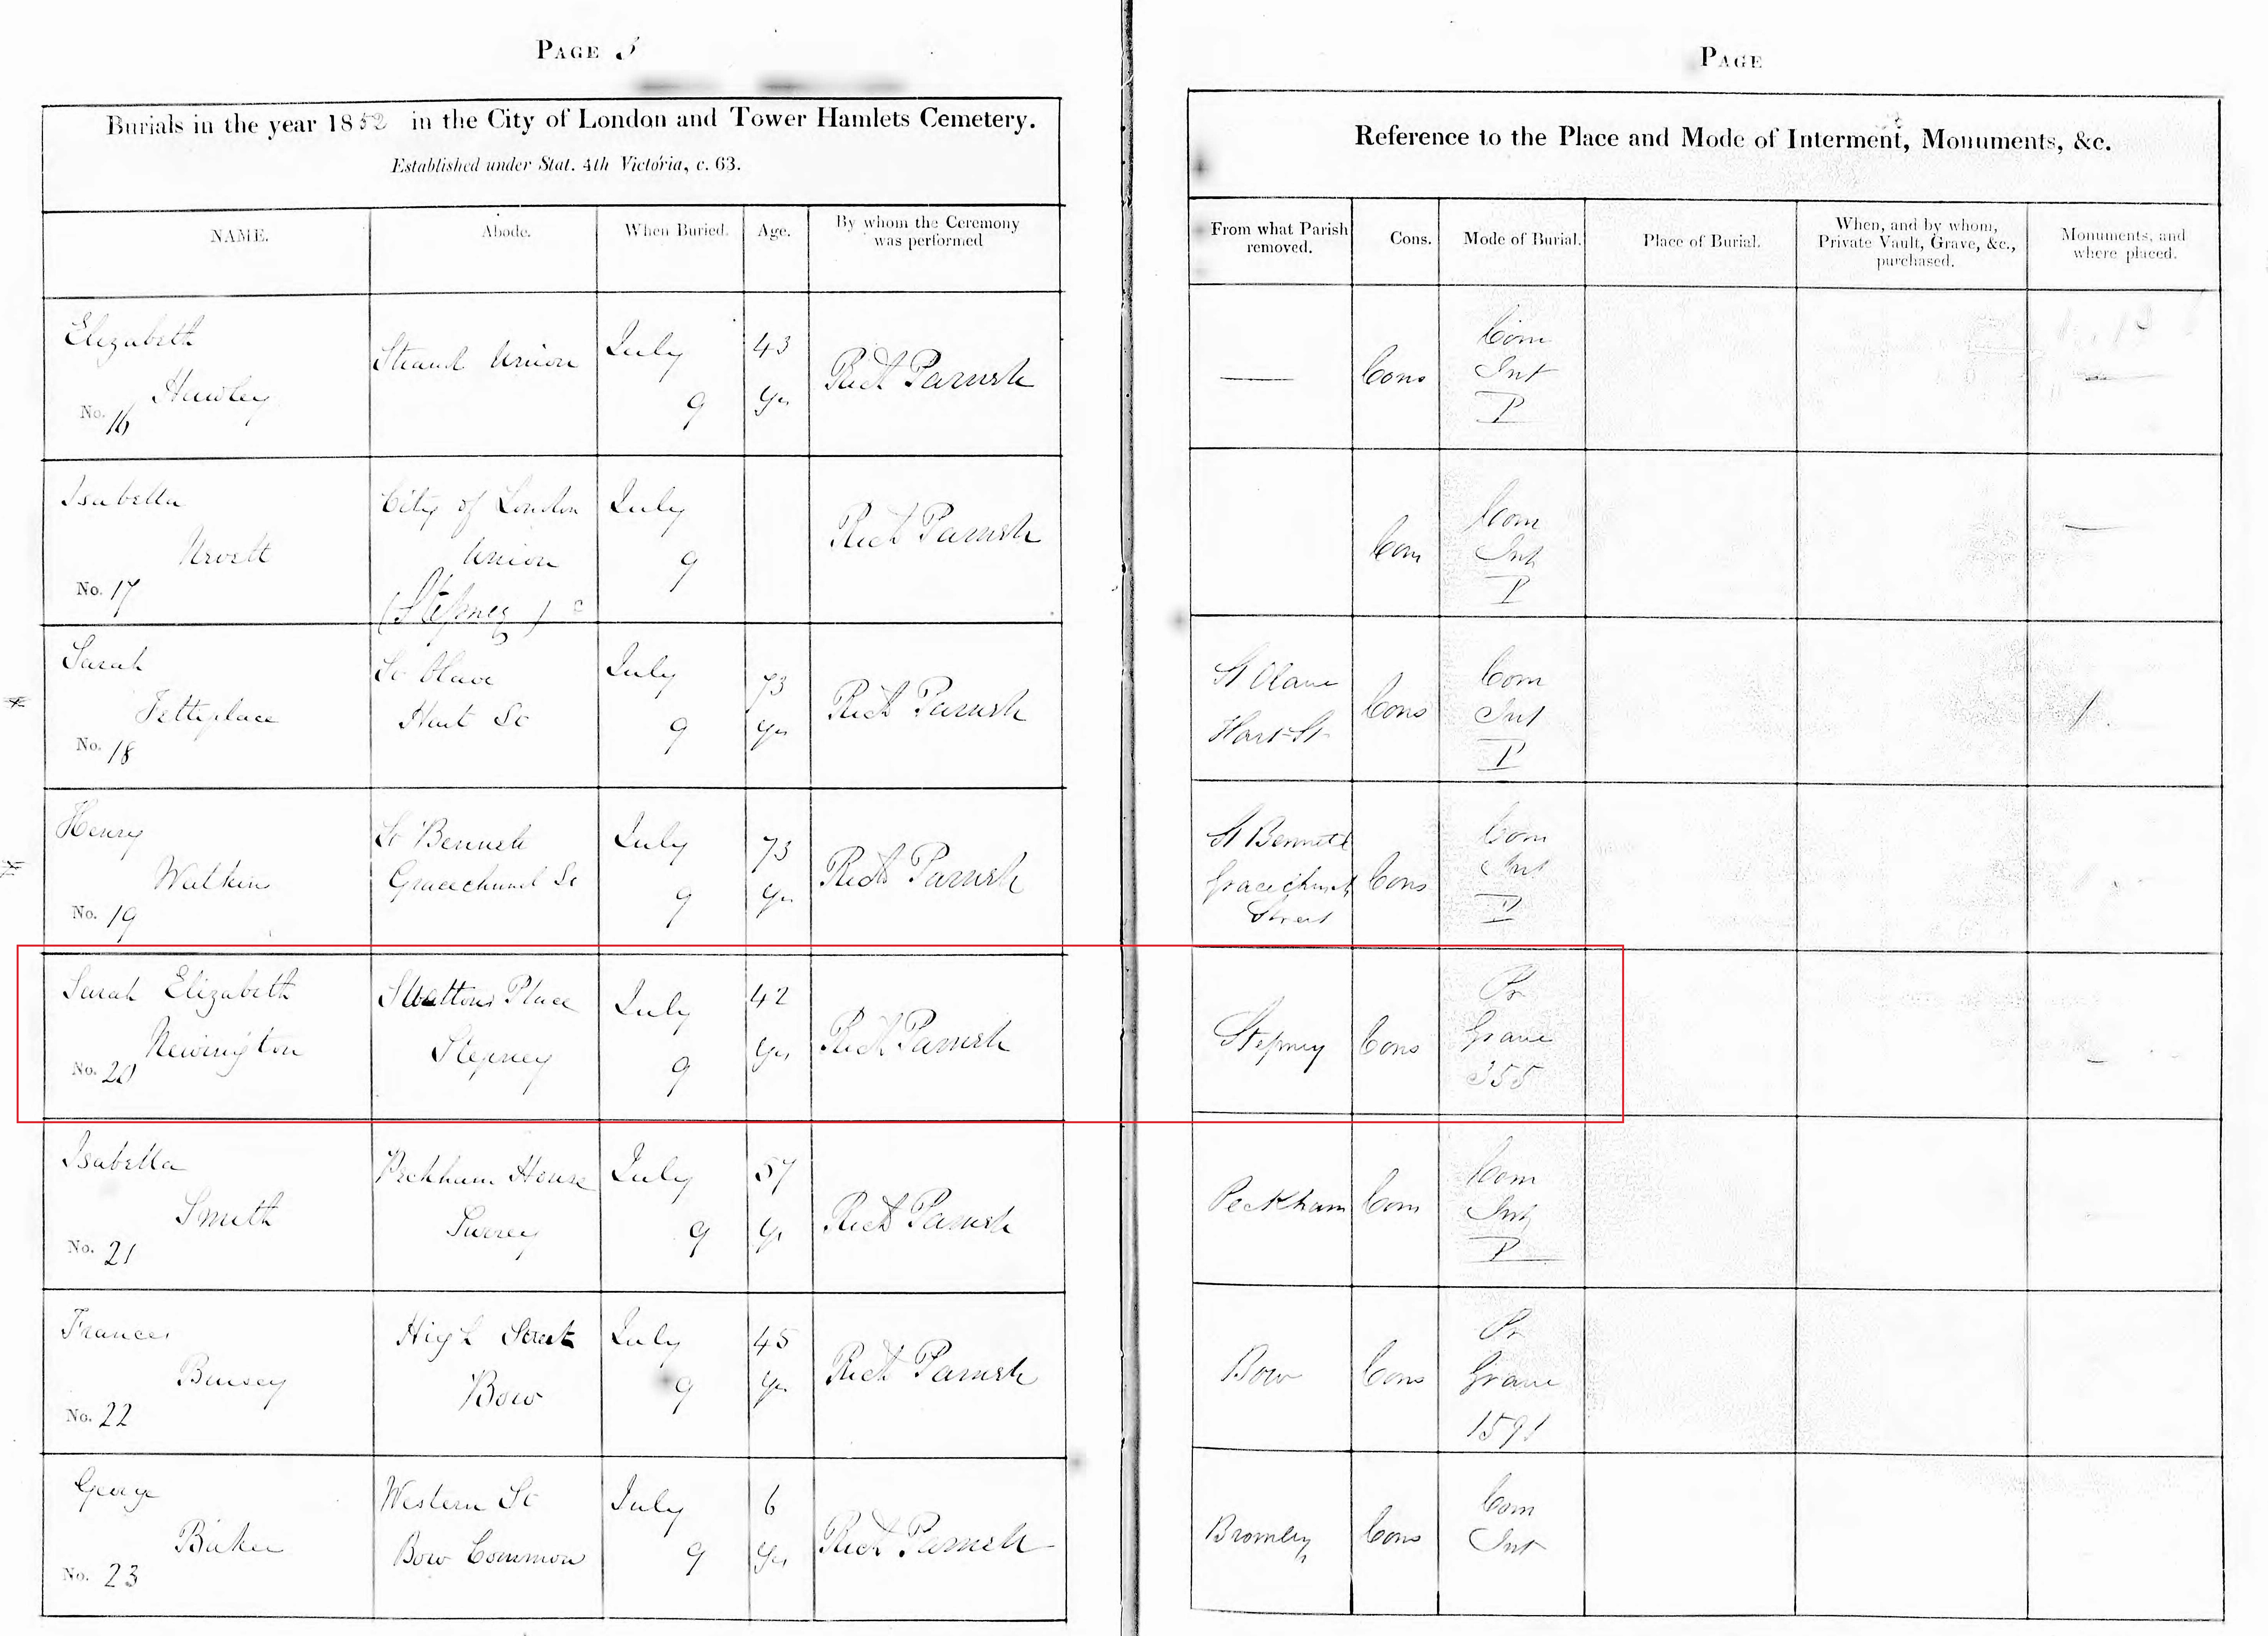 PAGE 3
Burials in the year 1852 in the City of London and Tower Hamlets Cemetery.
Established under Stat. 4th Victoria, c. 63.
NAME. Abode. When Buried. Age. By whom the Ceremony was performed
Elizabeth
Hawley
No. 16
Strand Union
July
9
43
Yrs
Richd Parrish
Isabella
No. 17
City of London
Union
(Stepney)
July
9
Richd Parrish
Sarah
Fettiplace
No. 18
St Olave
Hart St
July
9
73
Yrs
Richd Parrish
Henry
Watkins
No. 19
St Bennett
Gracechurch St
July
9
73
Yrs
Richd Parrish
Sarah Elizabeth
Newington
No. 20
Place
Stepney
July
9
42
Yrs
Richd Parrish
Isabella
Smith
No. 21
Peckham House
Surrey
July
9
57
Yr
Richd Parrish
Frances
No. 22
High Street
Bow
July
9
45
Yrs
Richd Parrish
George
Baker
No. 23
Western St
Bow Common
July
9
6
Yrs
Richd Parrish
PAGE
Reference to the Place and Mode of Interment, Monuments, &c.
From what Parish removed. Cons. Mode of Burial. Place of Burial. When, and by whom, Private Vault, Grave, &c., purchased. Monuments, and where placed.
Cons
Com
Int
P
Cons
Com
Int
P
St Olave
Hart St
Cons
Com
Int
P
St Bennett
Gracechurch
Street
Cons
Com
Int
P
Stepney
Cons
Pr
Grave
355
Peckham
Cons
Com
Int
P
Bow
Cons
Pr
Grave
1591
Bromley
Cons
Com
Int